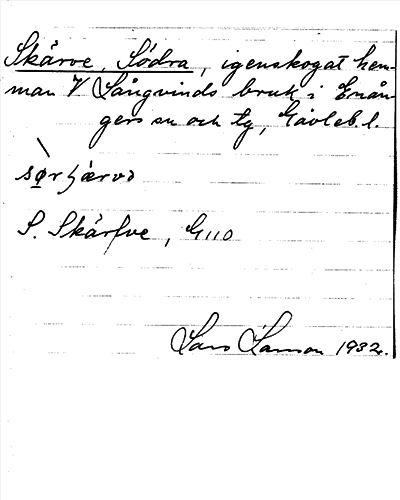 Skärve, Södra, igenskogat hem-
man V Långvinds bruk i Enån-
gers sn och tg, Gävleb. l.
sørʃærvə
S. Skärfve, G110
Lars Larsson 1932.